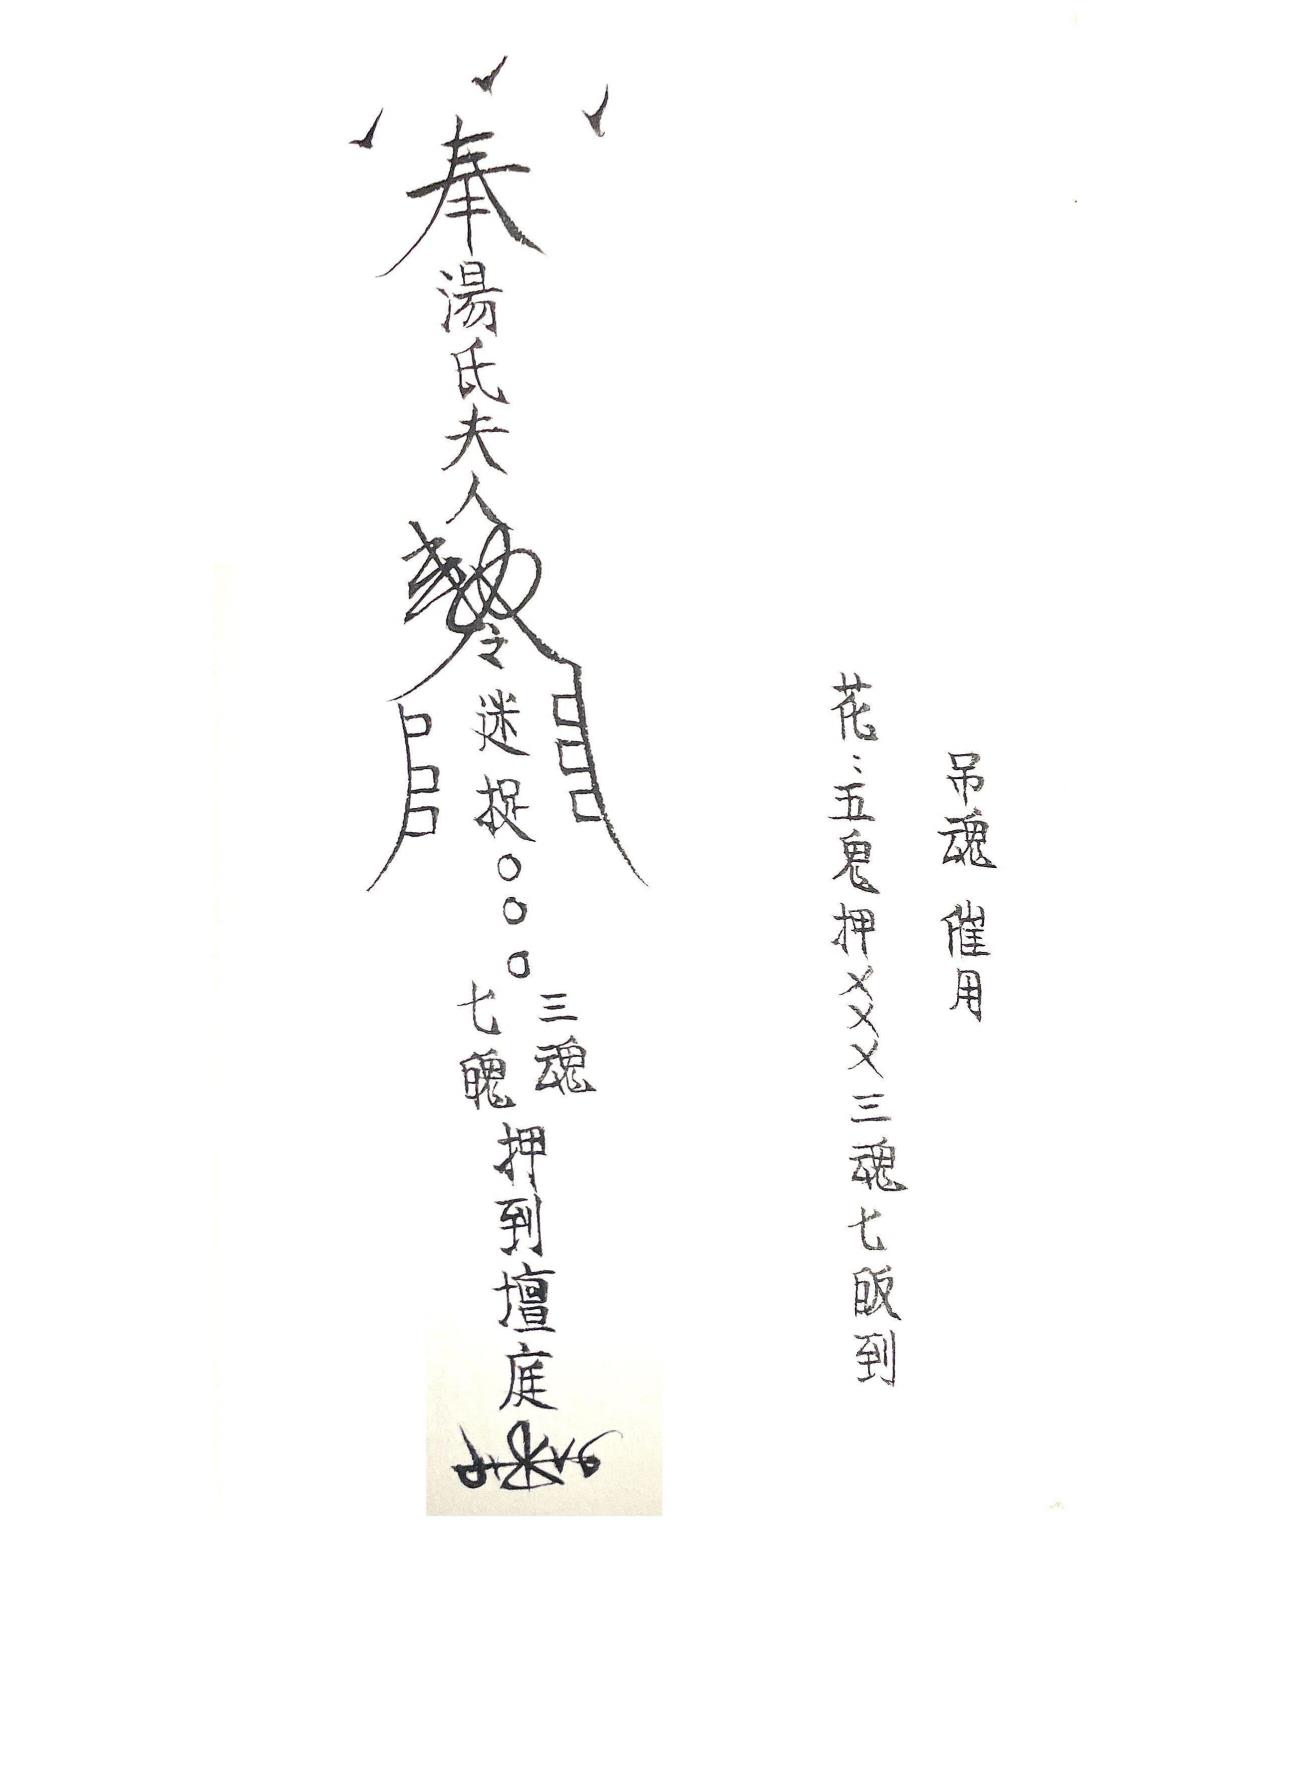 吊魂 催用
花：五鬼押XXX三魂七皈到
奉湯氏夫人勅令迷捉○○○
三魂
七魄
押到壇庭